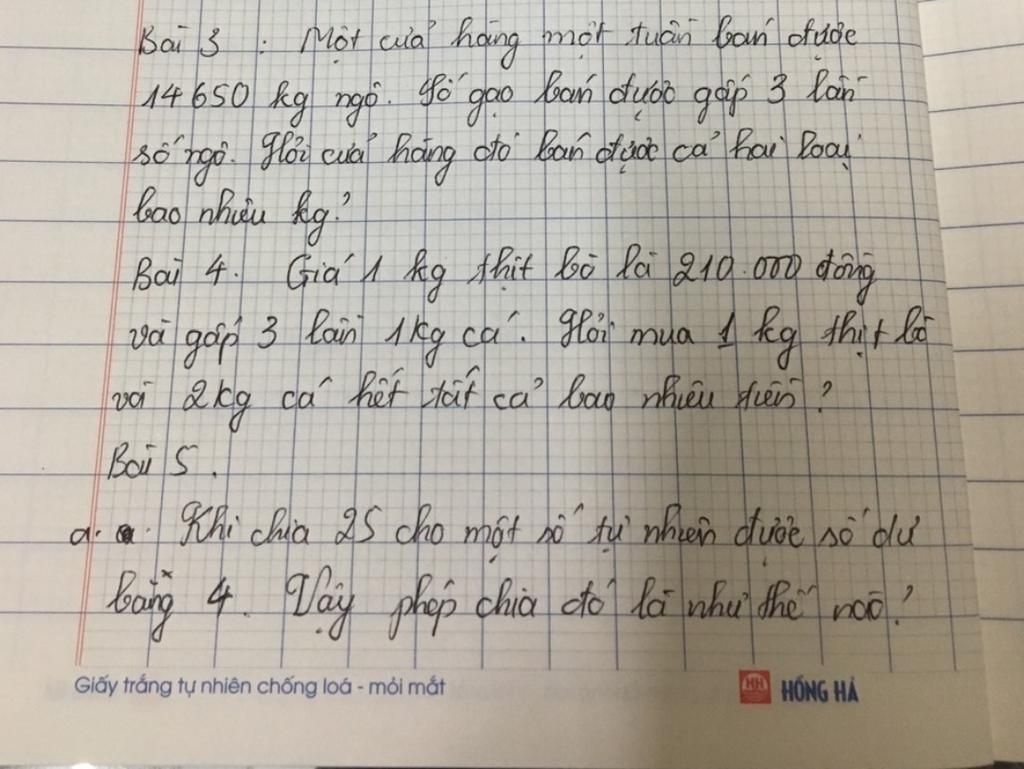 Bài 3 : Một cửa hàng một tuần bán được
14650 kg ngô. Số gạo bán được gấp 3 lần
số ngô. Hỏi cửa hàng đó bán được cả hai loại
bao nhiêu kg?
Bài 4. Giá 1 kg thịt bò là 210.000 đồng
và gấp 3 lần 1kg cá. Hỏi mua 1 kg thịt bò
và 2kg cá hết tất cả bao nhiêu tiền?
Bài 5.
a. Khi chia 25 cho một số tự nhiên được số dư
bằng 4. Vậy phép chia đó là như thế nào?
Giấy trắng tự nhiên chống loá - mỏi mắt
HH HỒNG HÀ